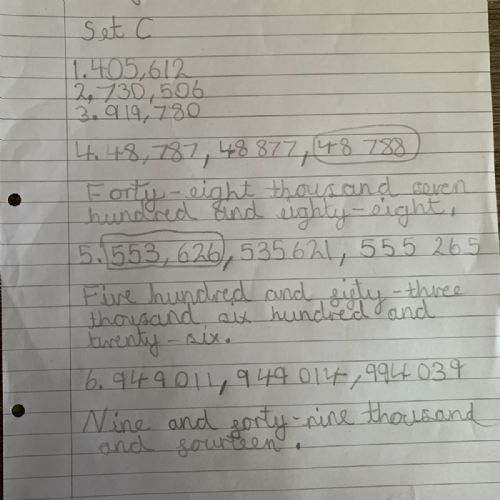 Set C
1. 405,612
2. 730,506
3. 919,780
4. 48,787, 48 877, 48 788
Forty-eight thousand seven
hundred and eighty-eight.
5. 553,626, 535621, 555 265
Five hundred and sixty-three
thousand six hundred and
twenty-six.
6. 949 011, 949 014, 994 039
Nine and forty-nine thousand
and fourteen.